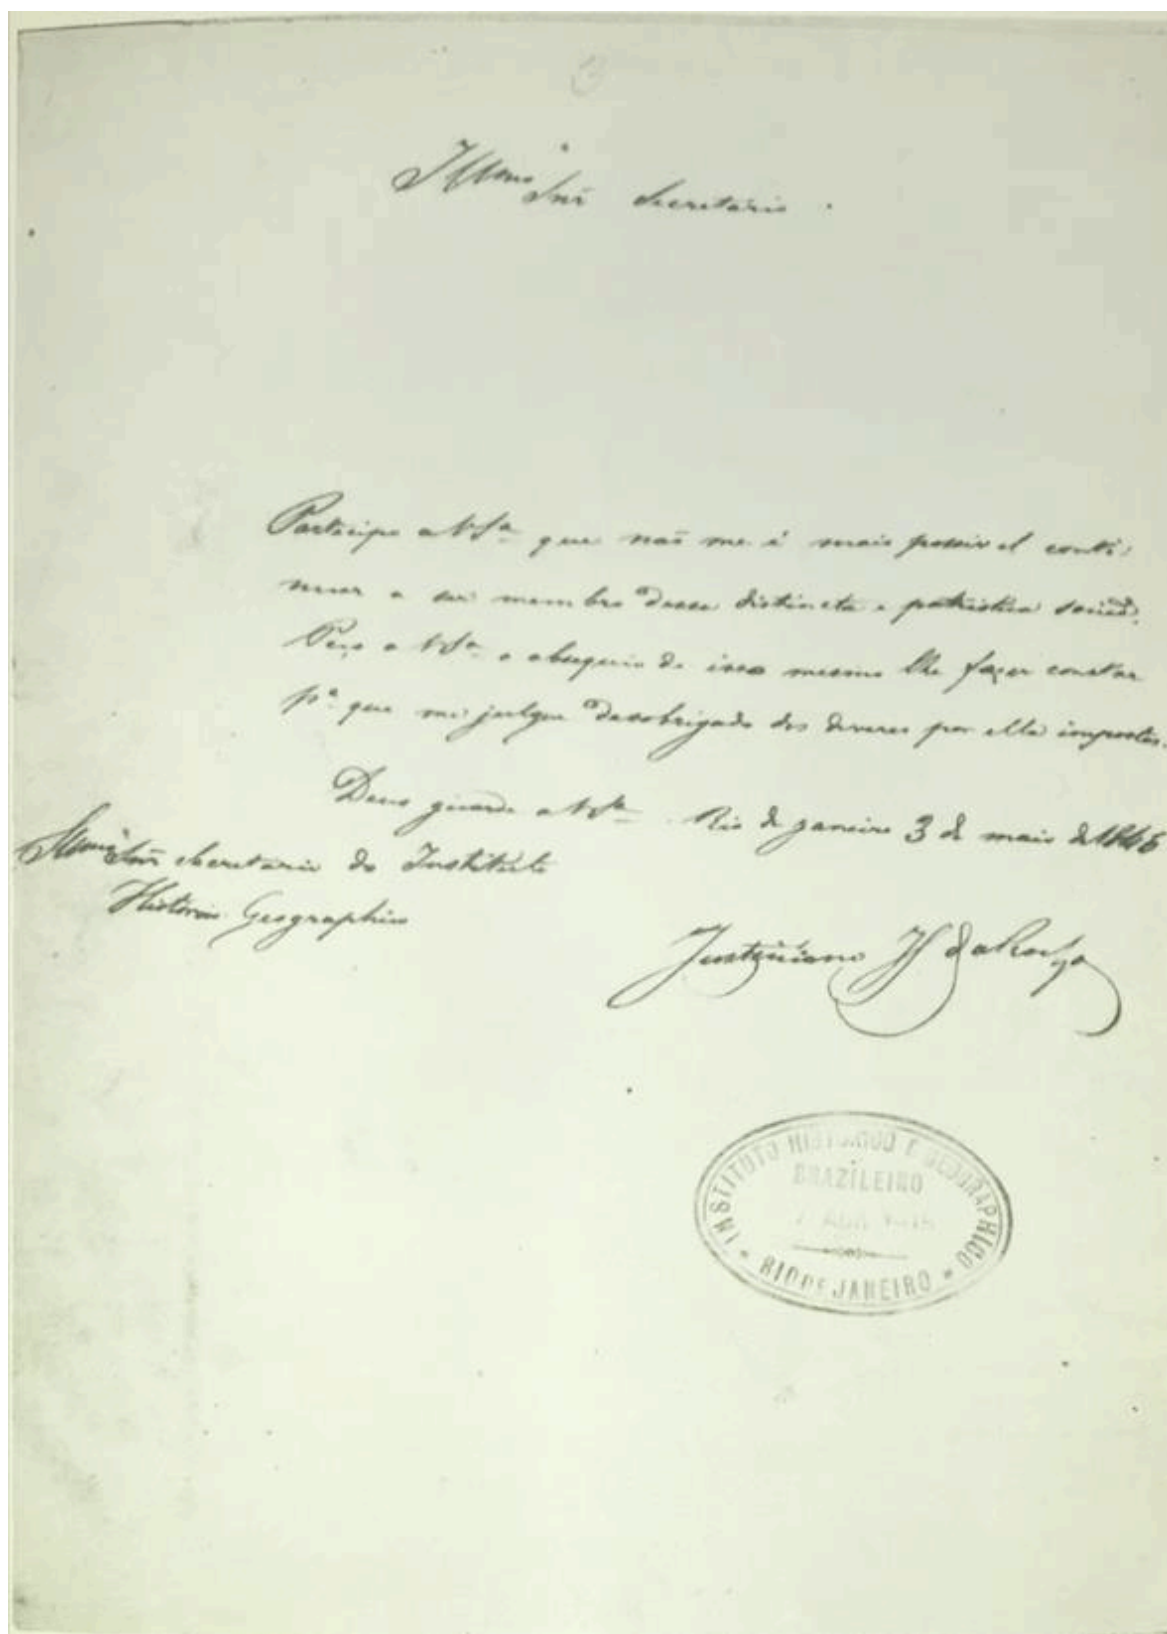 Illmo Snr Secretario.
Participo a V Sa que não me é mais possivel conti-
nuar a ser membro dessa distincta e patriotica socied.
Peço a V Sa o obsequio de isso mesmo lhe fazer constar
pa que me julgue desobrigado dos deveres por ella impostos.
Deus guarde a V Sa Rio de Janeiro 3 de maio de 1846
Illmo Snr Secretario do Instituto
Historico Geographico
Justiniano J da Rocha
INSTITUTO HISTORICO E GEOGRAPHICO
BRAZILEIRO
RIO DE JANEIRO